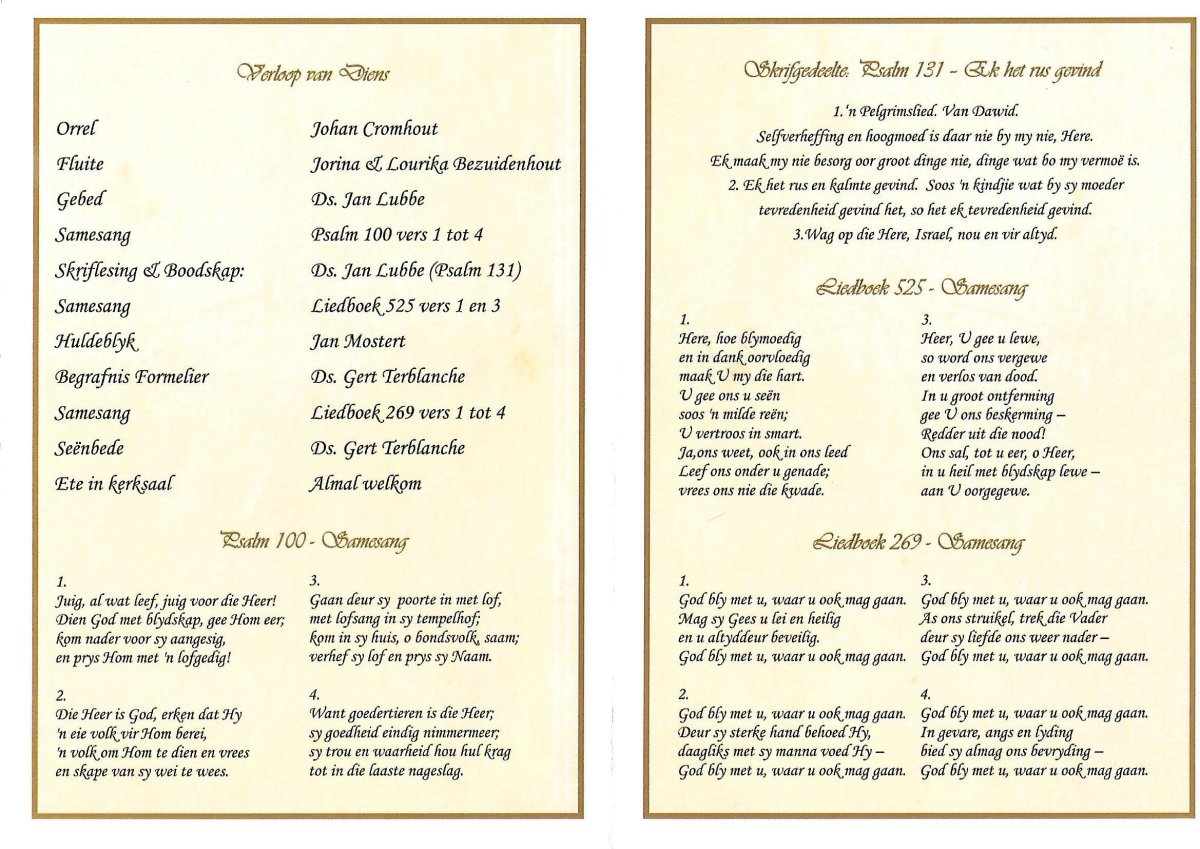 Verloop van Diens
Orrel Johan Cromhout
Fluite Jorina & Lourika Bezuidenhout
Gebed Ds. Jan Lubbe
Samesang Psalm 100 vers 1 tot 4
Skriflesing & Boodskap: Ds. Jan Lubbe (Psalm 131)
Samesang Liedboek 525 vers 1 en 3
Huldeblyk Jan Mostert
Begrafnis Formelier Ds. Gert Terblanche
Samesang Liedboek 269 vers 1 tot 4
Seënbede Ds. Gert Terblanche
Ete in kerksaal Almal welkom
Psalm 100 - Samesang
1.
Juig, al wat leef, juig voor die Heer!
Dien God met blydskap, gee Hom eer;
kom nader voor sy aangesig,
en prys Hom met 'n lofgedig!
2.
Die Heer is God, erken dat Hy
'n eie volk vir Hom berei,
'n volk om Hom te dien en vrees
en skape van sy wei te wees.
3.
Gaan deur sy poorte in met lof,
met lofsang in sy tempelhof;
kom in sy huis, o bondsvolk, saam;
verhef sy lof en prys sy Naam.
4.
Want goedertieren is die Heer;
sy goedheid eindig nimmermeer;
sy trou en waarheid hou hul krag
tot in die laaste nageslag.
Skrifgedeelte: Psalm 131 - Ek het rus gevind
1.'n Pelgrimslied. Van Dawid.
Selfverheffing en hoogmoed is daar nie by my nie, Here.
Ek maak my nie besorg oor groot dinge nie, dinge wat bo my vermoë is.
2. Ek het rus en kalmte gevind. Soos 'n kindjie wat by sy moeder
tevredenheid gevind het, so het ek tevredenheid gevind.
3.Wag op die Here, Israel, nou en vir altyd.
Liedboek 525 - Samesang
1.
Here, hoe blymoedig
en in dank oorvloedig
maak U my die hart.
U gee ons u seën
soos 'n milde reën;
U vertroos in smart.
Ja,ons weet, ook in ons leed
Leef ons onder u genade;
vrees ons nie die kwade.
3.
Heer, U gee u lewe,
so word ons vergewe
en verlos van dood.
In u groot ontferming
gee U ons beskerming –
Redder uit die nood!
Ons sal, tot u eer, o Heer,
in u heil met blydskap lewe –
aan U oorgegewe.
Liedboek 269 - Samesang
1.
God bly met u, waar u ook mag gaan.
Mag sy Gees u lei en heilig
en u altyddeur beveilig.
God bly met u, waar u ook mag gaan.
2.
God bly met u, waar u ook mag gaan.
Deur sy sterke hand behoed Hy,
daagliks met sy manna voed Hy –
God bly met u, waar u ook mag gaan.
3.
God bly met u, waar u ook mag gaan.
As ons struikel, trek die Vader
deur sy liefde ons weer nader –
God bly met u, waar u ook mag gaan.
4.
God bly met u, waar u ook mag gaan.
In gevare, angs en lyding
bied sy almag ons bevryding –
God bly met u, waar u ook mag gaan.